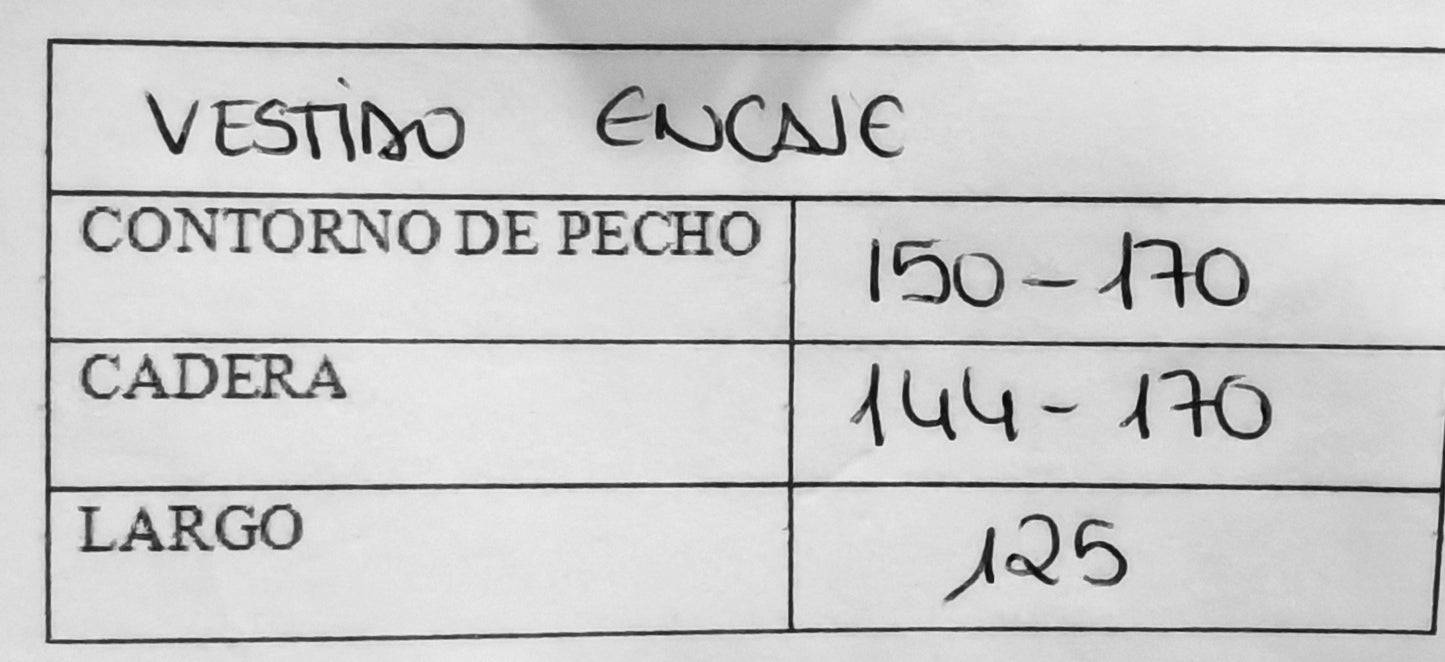 VESTIDO ENCAJE
CONTORNO DE PECHO 150-170
CADERA 144-170
LARGO 125